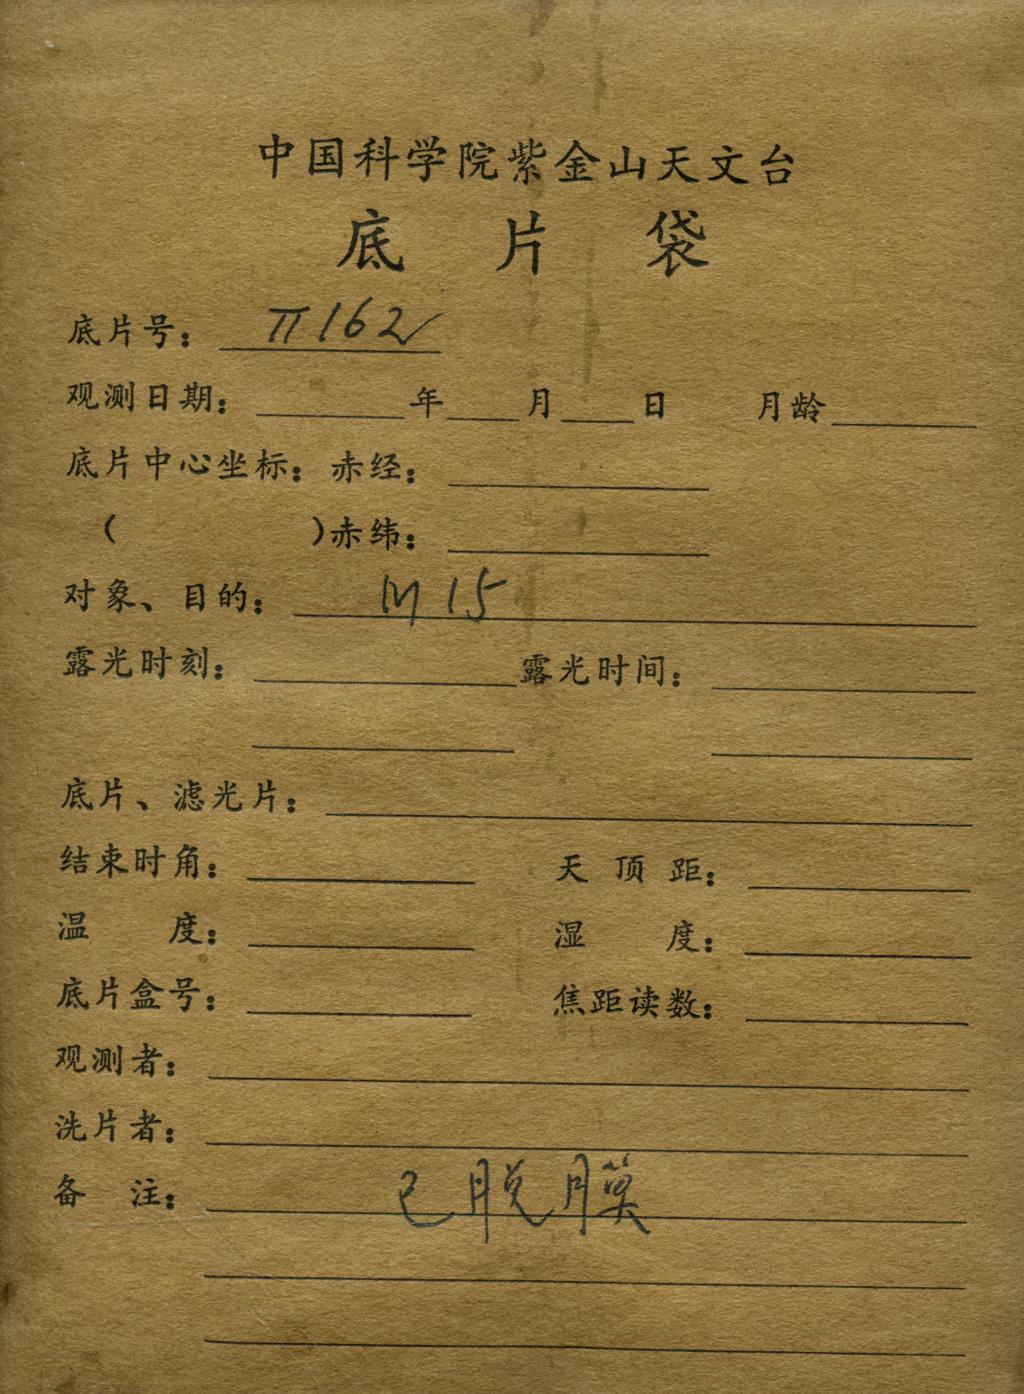 中国科学院紫金山天文台
底片袋
底片号：π162
观测日期：年月日 月龄
底片中心坐标：赤经：
（ ）赤纬：
对象、目的：M15
露光时刻： 露光时间：
底片、滤光片：
结束时角： 天顶距：
温度： 湿度：
底片盒号： 焦距读数：
观测者：
洗片者：
备注：已脱膜